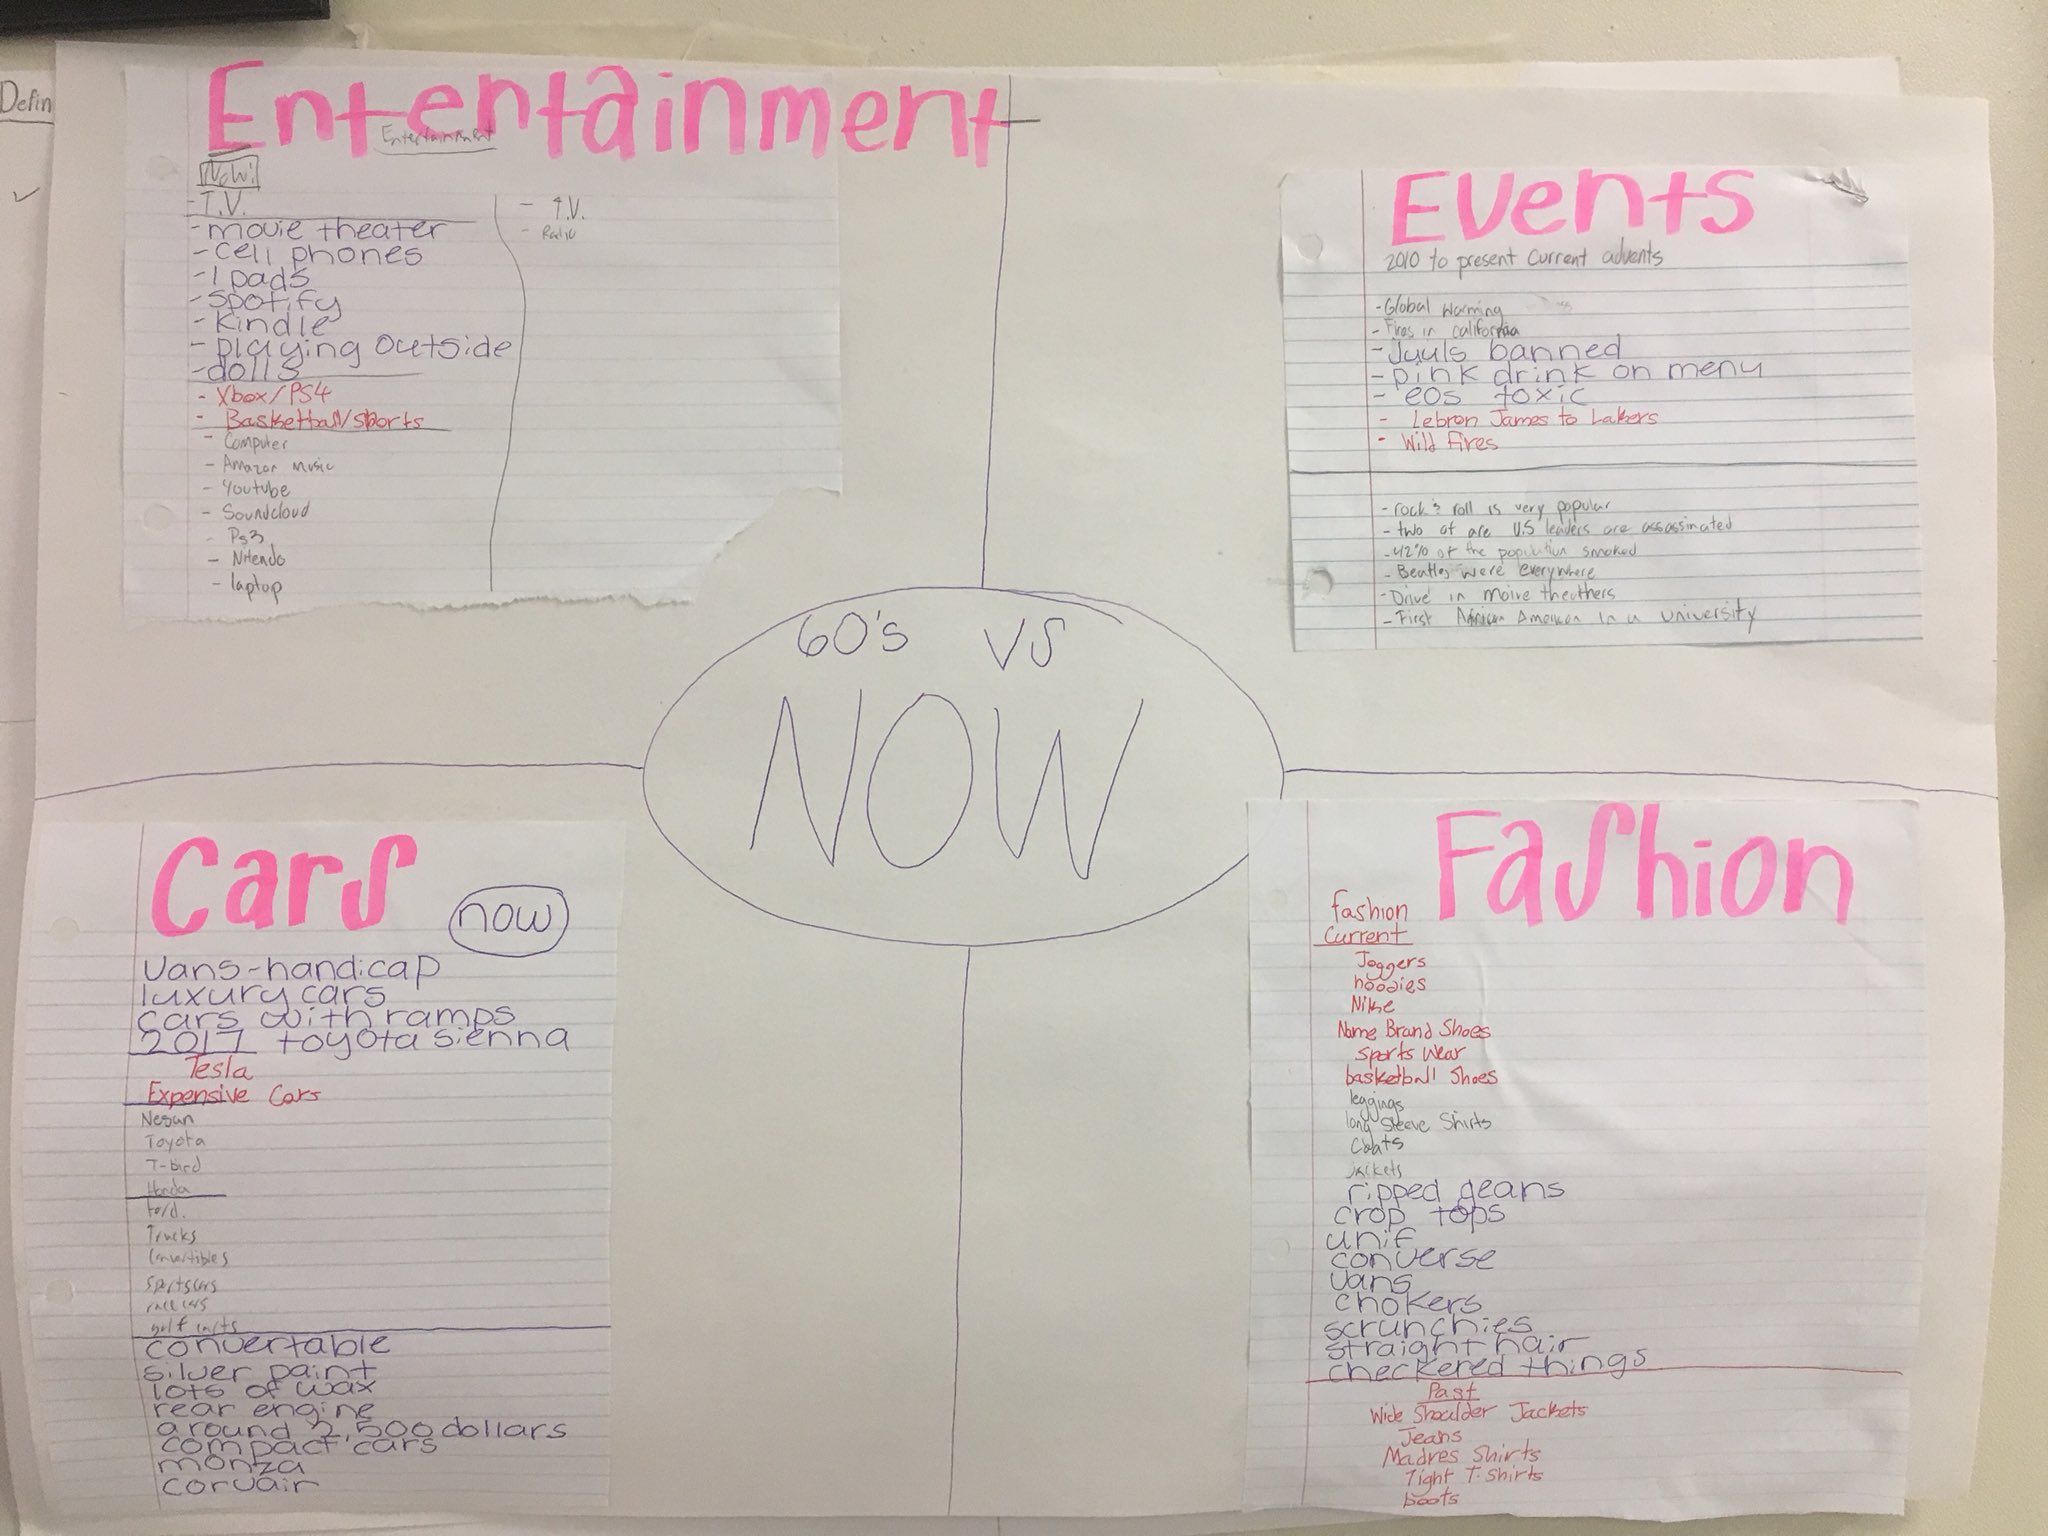 Defin
Entertainment
Entertainment
Now:
- T.V.
- movie theater
- cell phones
- I pads
- spotify
- kindle
- playing outside
- dolls
- Xbox/PS4
- Basketball/sports
- Computer
- Amazon Music
- Youtube
- Soundcloud
- Ps3
- Nitendo
- laptop
- T.V.
- Radio
Events
2010 to present current advents
- Global warming
- Fires in california
- Juuls banned
- pink drink on menu
- eos toxic
- Lebron James to Lakers
- Wild Fires
- rock & roll is very popular
- two of are U.S leaders are assassinated
- 42% of the population smoked
- Beatles were everywhere
- Drive in moive theathers
- First African American in a university
60's VS
NOW
Cars
now
vans-handicap
luxury cars
cars with ramps
2017 toyota sienna
Tesla
Expensive Cars
Nesan
Toyota
T-bird
Honda
ford.
Trucks
Convertibles
sportscars
race cars
golf carts
convertable
silver paint
lots of wax
rear engine
around 2,500 dollars
compact cars
monza
corvair
Fashion
fashion
Current
Joggers
hoodies
Nike
Name Brand Shoes
sports wear
basketball shoes
leggings
long sleeve shirts
Coats
jackets
ripped geans
crop tops
unif
converse
vans
chokers
scrunchies
straight hair
checkered things
Past
Wide Shoulder Jackets
Jeans
Madres Shirts
Tight T-Shirts
boots